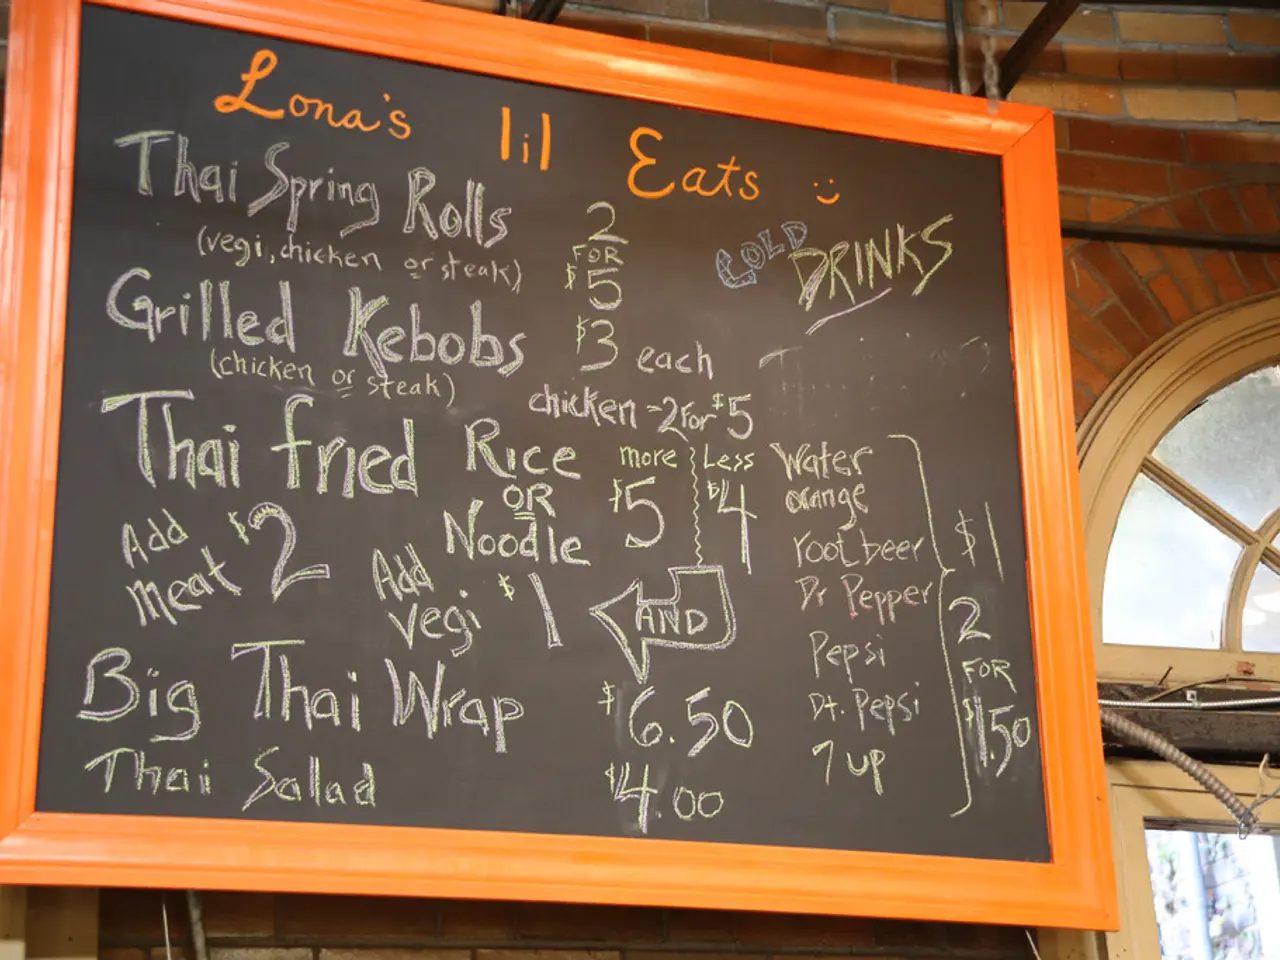 Lona's lil Eats
Thai Spring Rolls 2 FOR $5
(vegi, chicken or steak)
Grilled Kebobs $3 each
(chicken or steak)
chicken = 2 for $5
Thai fried Rice OR Noodle
more $5
Less $4
Add meat $2
Add vegi $1
AND
Big Thai Wrap $6.50
Thai Salad $4.00
COLD DRINKS
Water
orange
root beer
Dr Pepper
Pepsi
Dt. Pepsi
7 up
$1
2 FOR $1.50